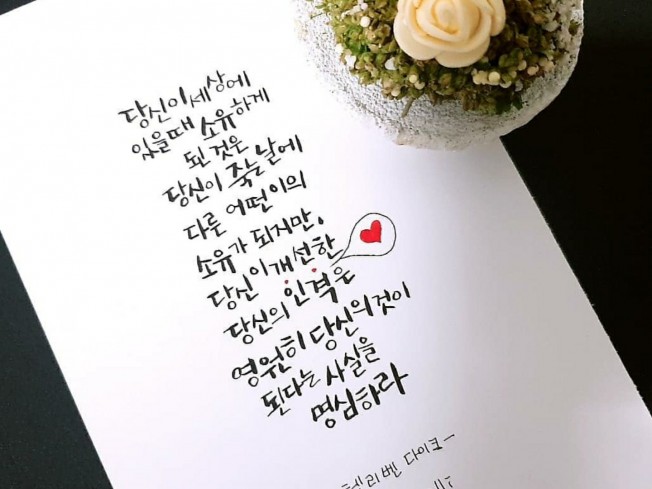 당신이 세상에
있을때 소유하게
된 것은
당신이 죽는 날에
다른 어떤이의
소유가 되지만,
당신이 개선한
당신의 인격은
영원히 당신의것이
된다는 사실을
명심하라
헨리 벤 다이크-